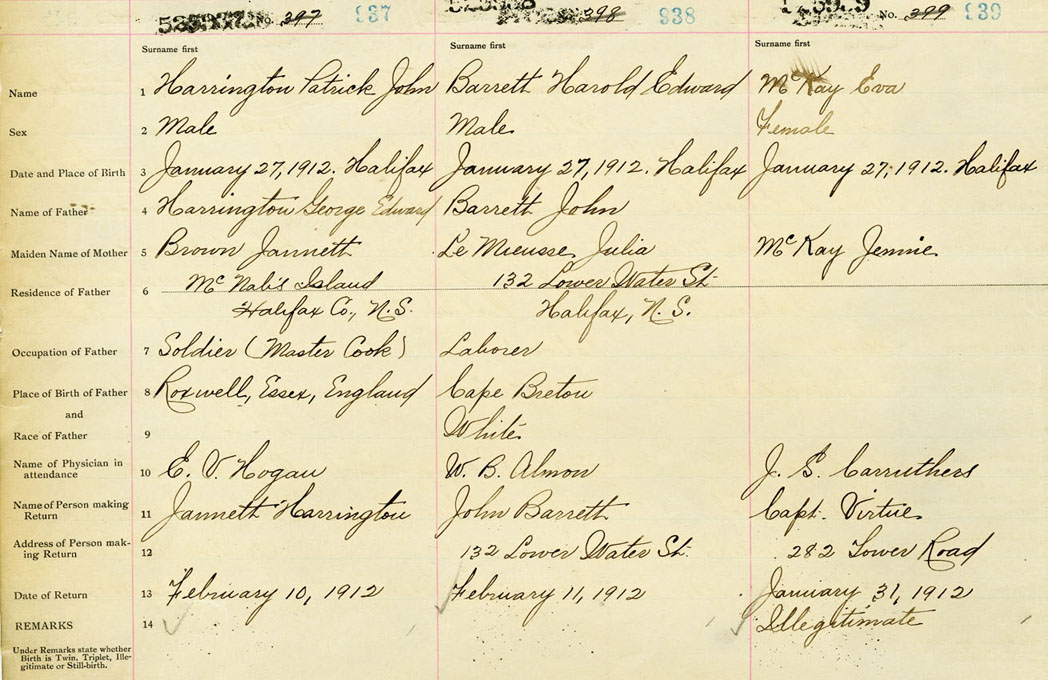 No. 397 937 398 938 No. 399 939
Surname first Surname first Surname first
Name 1 Harrington Patrick John Barrett Harold Edward McKay Eva
Sex 2 Male Male Female
Date and Place of Birth 3 January 27, 1912. Halifax January 27, 1912. Halifax January 27, 1912. Halifax
Name of Father 4 Harrington George Edward Barrett John
Maiden Name of Mother 5 Brown Jannett Le Mieusse Julia McKay Jennie
McNab's Island 132 Lower Water St.
Residence of Father 6
Halifax Co., N.S. Halifax, N.S.
Occupation of Father 7 Soldier (Master Cook) Laborer
Place of Birth of Father 8 Roxwell, Essex, England Cape Breton
and
Race of Father 9 White
Name of Physician in
attendance 10 E. V. Hogan W. B. Almon J. S. Carruthers
Name of Person making
Return 11 Jannett Harrington John Barrett Capt. Virtue
Address of Person mak-
ing Return 12 132 Lower Water St. 282 Tower Road
Date of Return 13 February 10, 1912 February 11, 1912 January 31, 1912
REMARKS 14 Illegitimate
Under Remarks state whether
Birth is Twin, Triplet, Ille-
gitimate or Still-birth.